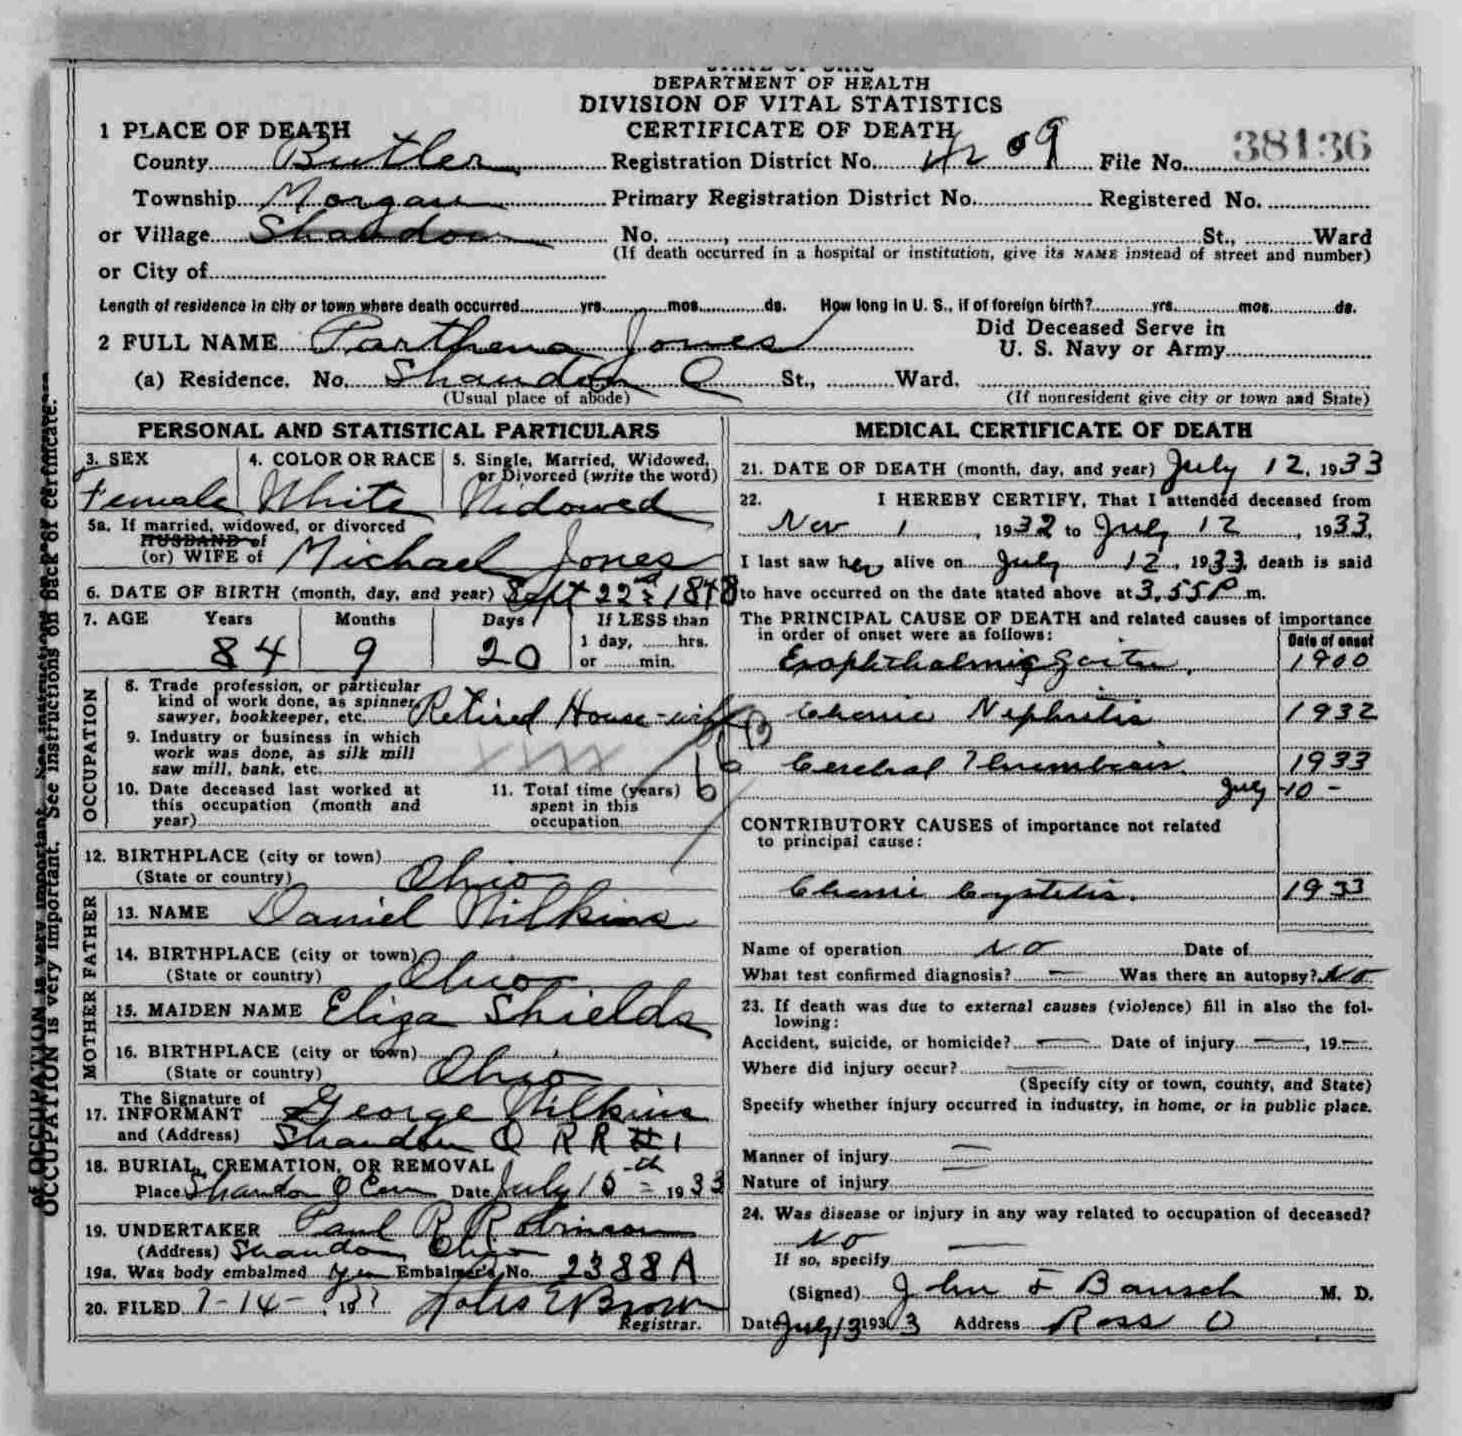 DEPARTMENT OF HEALTH
DIVISION OF VITAL STATISTICS
CERTIFICATE OF DEATH
1 PLACE OF DEATH
County Butler Registration District No. 09 File No. 38136
Township Morgan Primary Registration District No. Registered No.
or Village Shandon No. , St., Ward
(If death occurred in a hospital or institution, give its NAME instead of street and number)
or City of
Length of residence in city or town where death occurred yrs. mos. ds. How long in U. S., if of foreign birth? yrs. mos. ds.
2 FULL NAME Parthena Jones Did Deceased Serve in U. S. Navy or Army
(a) Residence. No. Shandon O St., Ward.
(Usual place of abode) (If nonresident give city or town and State)
PERSONAL AND STATISTICAL PARTICULARS
3. SEX 4. COLOR OR RACE 5. Single, Married, Widowed, or Divorced (write the word)
Female White Widowed
5a. If married, widowed, or divorced
HUSBAND of
(or) WIFE of Michael Jones
6. DATE OF BIRTH (month, day, and year) Sept 22nd 1848
7. AGE Years Months Days If LESS than
1 day, hrs.
or min.
84 9 20
OCCUPATION
8. Trade profession, or particular
kind of work done, as spinner,
sawyer, bookkeeper, etc. Retired House-wife
9. Industry or business in which
work was done, as silk mill
saw mill, bank, etc. XXXX
10. Date deceased last worked at
this occupation (month and
year)
11. Total time (years)
spent in this
occupation
12. BIRTHPLACE (city or town)
(State or country) Ohio
FATHER
13. NAME Daniel Wilkins
14. BIRTHPLACE (city or town)
(State or country) Ohio
MOTHER
15. MAIDEN NAME Eliza Shields
16. BIRTHPLACE (city or town)
(State or country) Ohio
The Signature of
17. INFORMANT George Wilkins
and (Address) Shandon O R R #1
18. BURIAL, CREMATION, OR REMOVAL
Place Shandon O Cem Date July 15th 1933
19. UNDERTAKER Paul R Robinson
(Address) Shandon Ohio
19a. Was body embalmed Yes Embalmer's No. 2388A
20. FILED 7-14-, 1933 E Brown
Registrar.
MEDICAL CERTIFICATE OF DEATH
21. DATE OF DEATH (month, day, and year) July 12, 1933
22. I HEREBY CERTIFY, That I attended deceased from
Nov 1, 1932 to July 12, 1933,
I last saw her alive on July 12, 1933, death is said
to have occurred on the date stated above at 3.55 P m.
The PRINCIPAL CAUSE OF DEATH and related causes of importance
in order of onset were as follows: Date of onset
Exophthalmic Goiter. 1900
Chronic Nephritis 1932
Cerebral Thrombosis. 1933
July -10-
CONTRIBUTORY CAUSES of importance not related
to principal cause:
Chronic Cystitis. 1933
Name of operation No Date of
What test confirmed diagnosis? — Was there an autopsy? No
23. If death was due to external causes (violence) fill in also the fol-
lowing:
Accident, suicide, or homicide? — Date of injury —, 19—
Where did injury occur? —
(Specify city or town, county, and State)
Specify whether injury occurred in industry, in home, or in public place.
Manner of injury —
Nature of injury
24. Was disease or injury in any way related to occupation of deceased?
No —
If so, specify
(Signed) John F Bausch M. D.
Date July 13 1933 Address Ross O
OCCUPATION is very important. See instructions on back of certificate.